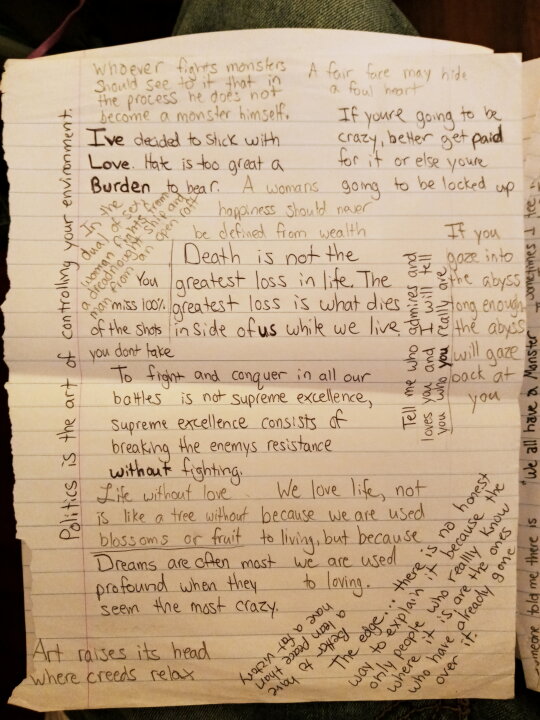 Whoever fights monsters
should see to it that in
the process he does not
become a monster himself.
A fair face may hide
a foul heart
I've decided to stick with
Love. Hate is too great a
Burden to bear.
If youre going to be
crazy, better get paid
for it or else youre
going to be locked up
A womans
happiness should never
be defined from wealth
Politics is the art of controlling your environment.
In the
dual of sex
woman fights from
a dreadnought ship and
man from an open raft
You
miss 100%
of the shots
you dont take
Death is not the
greatest loss in life. The
greatest loss is what dies
in side of us while we live
Tell me who admires and
loves you and I will tell
you who you really are
If you
gaze into
the abyss
long enough
the abyss
will gaze
back at
you
To fight and conquer in all our
battles is not supreme excellence,
supreme excellence consists of
breaking the enemys resistance
without fighting.
Life without love
is like a tree without
blossoms or fruit
We love life, not
because we are used
to living, but because
we are used
to loving.
Dreams are often most
profound when they
seem the most crazy.
The edge... there is no honest
way to explain it because the
only people who really know
where it is, are the ones
who have already gone
over it.
to have
a lean peace
better than
have a fat victory
Art raises its head
where creeds relax
"We all have a Monster
someone told me there is
sometimes I